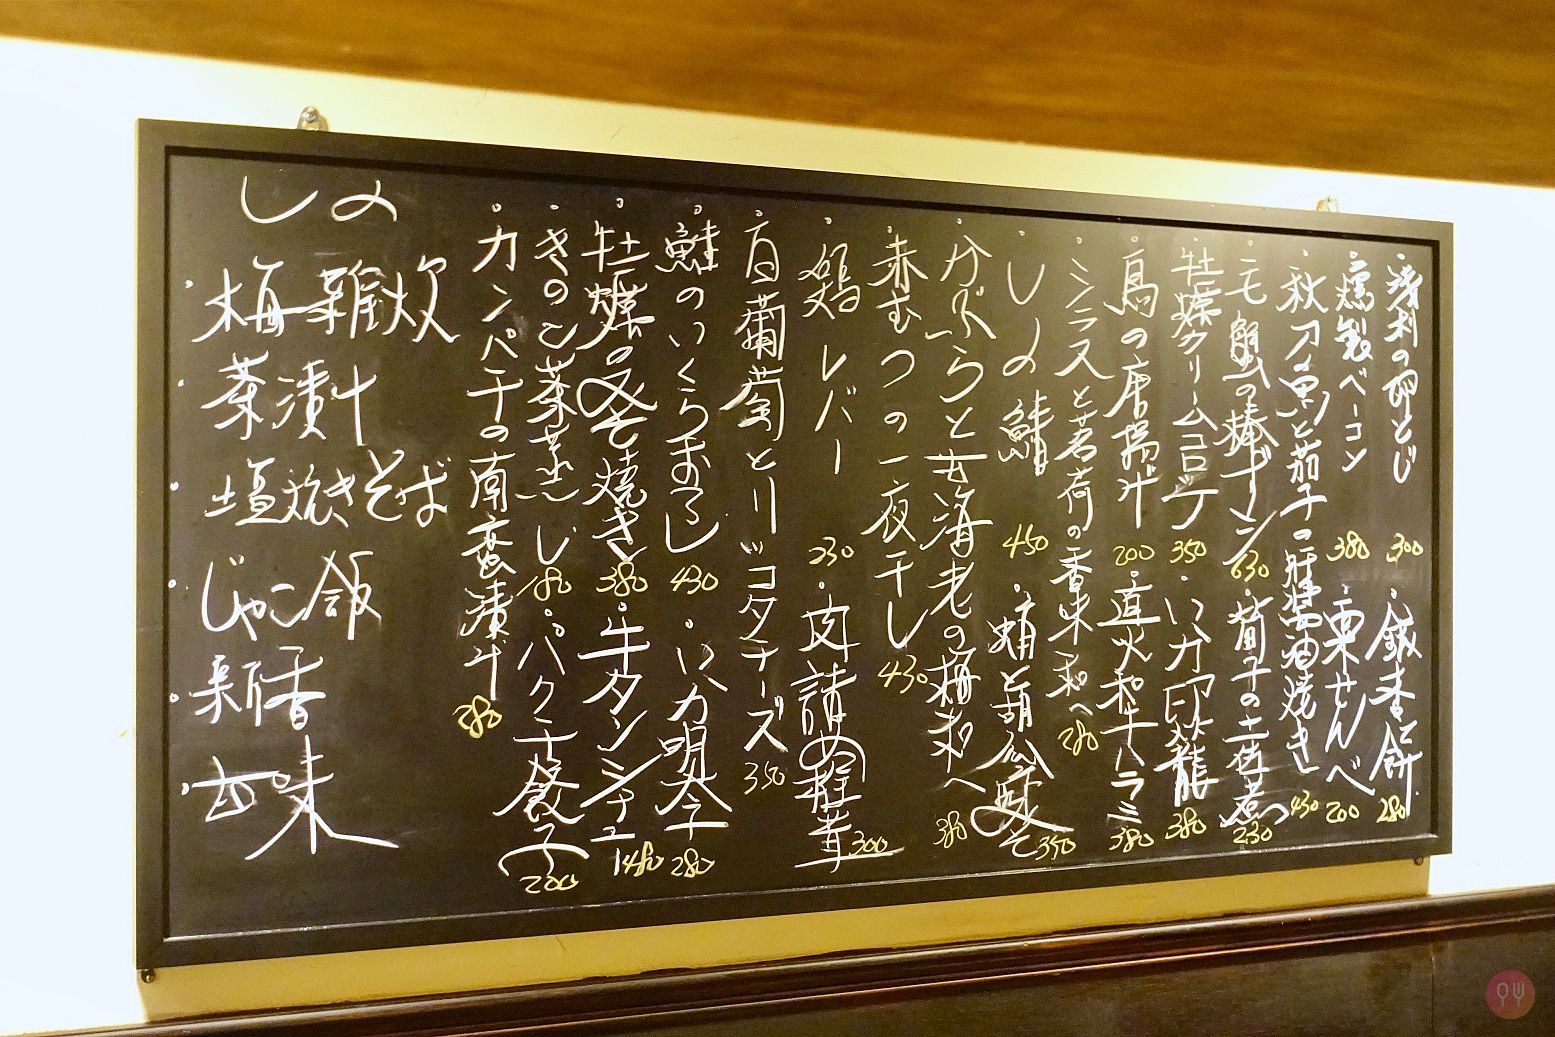 浅利の卵とじ 300
・銀杏餅 280
・燻製ベーコン 380
・栗せんべ 200
・秋刀魚と茄子の肝醤油焼き 430
・毛蟹の棒ギョーザ 630
・筍子の土佐煮 230
・牡蠣クリームコロッケ 350
・いか印籠 380
・鳥の唐揚げ 200
・直火和牛ハラミ 380
・シラスと茗荷の香味和へ 280
・しめ鯖 450
・蛸と胡瓜酸そ 350
・かぶらと甘海老の梅和へ 380
・赤むつの一夜干し 430
・鶏レバー 230
・肉詰め椎茸 300
・白葡萄とリコッタチーズ 350
・鮭のいくらおろし 430
・いか明太子 280
・牡蠣の 焼き 380
・牛タンシチュー 480
・きのこ茶蒸し 180
・パクチー餃子 200
・カンパチの南蛮漬け 380
しめ
・梅雑炊
・茶漬け
・塩焼きそば
・じゃこ飯
・新香
・甘味